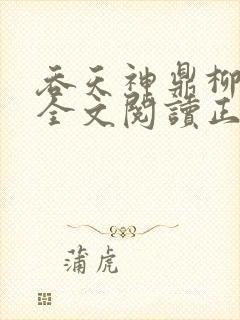 吞天神鼎柳
全文閱讀正
蒲虎